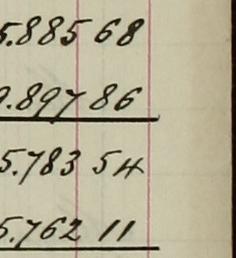 5.885 68
9.897 86
5.783 54
5.762 11